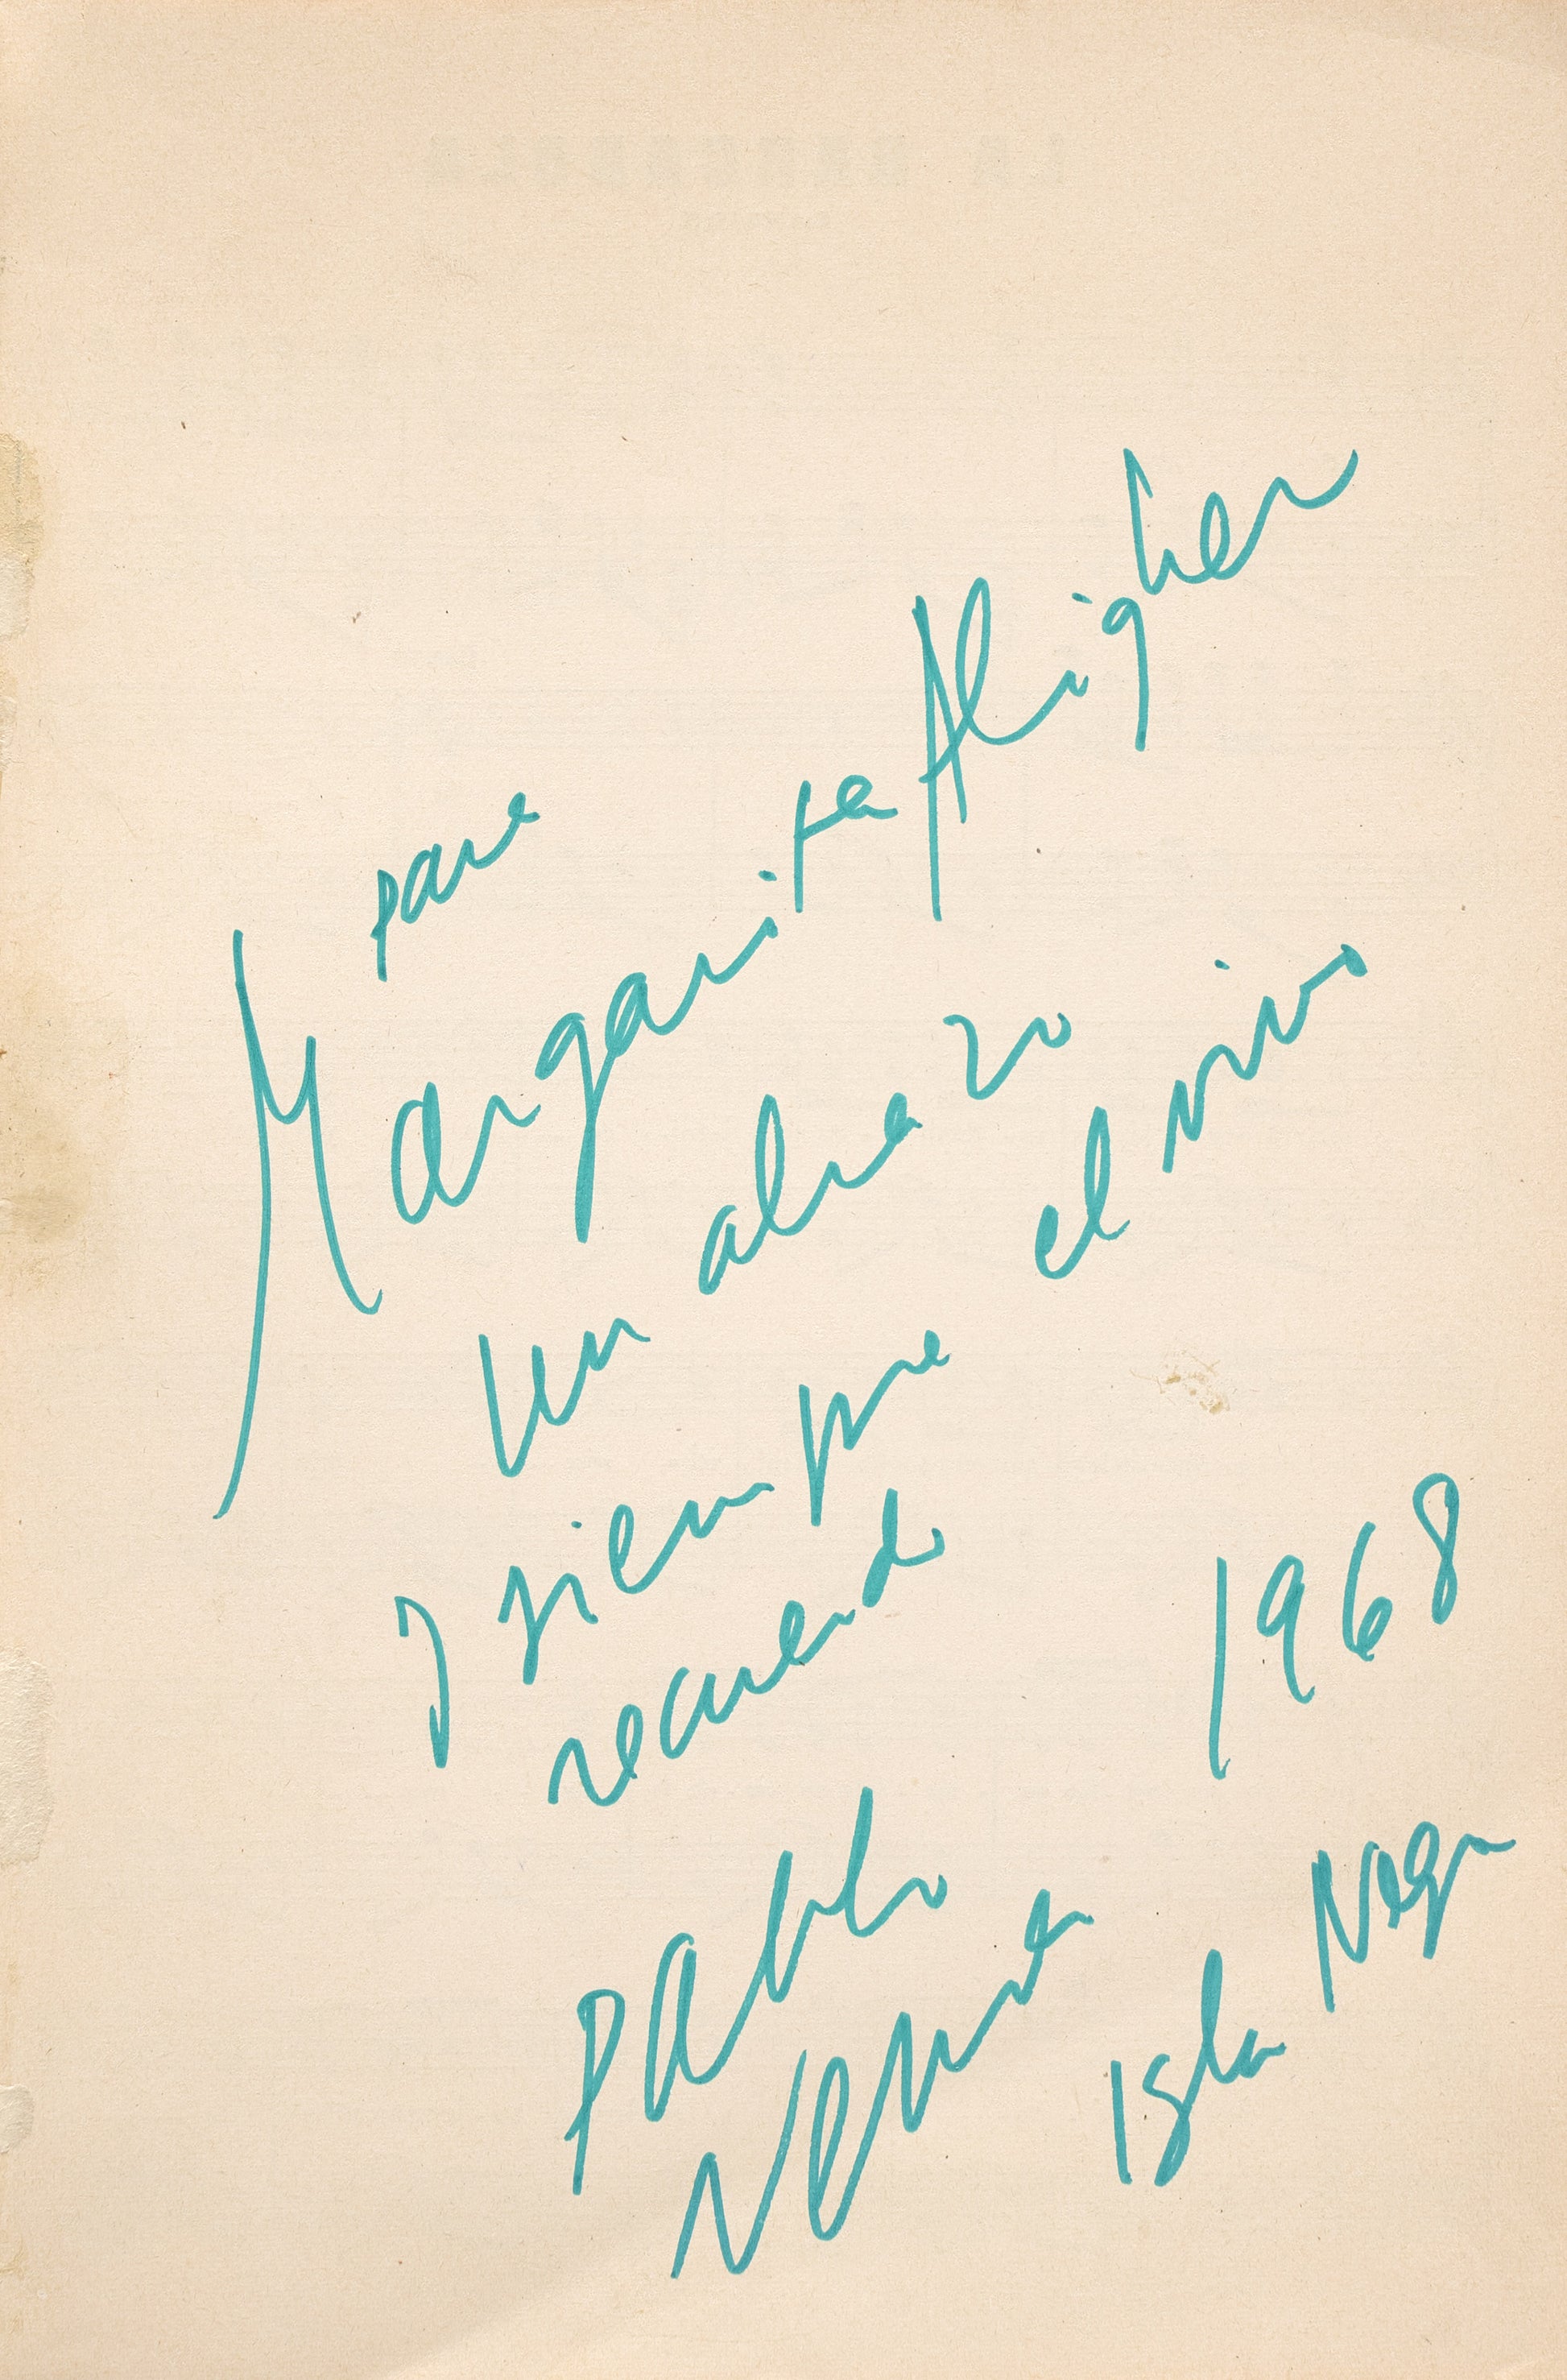 para
Margarita Aligher
un abrazo
y siempre el vivo
recuerdo
Pablo
Neruda
1968
Isla Negra